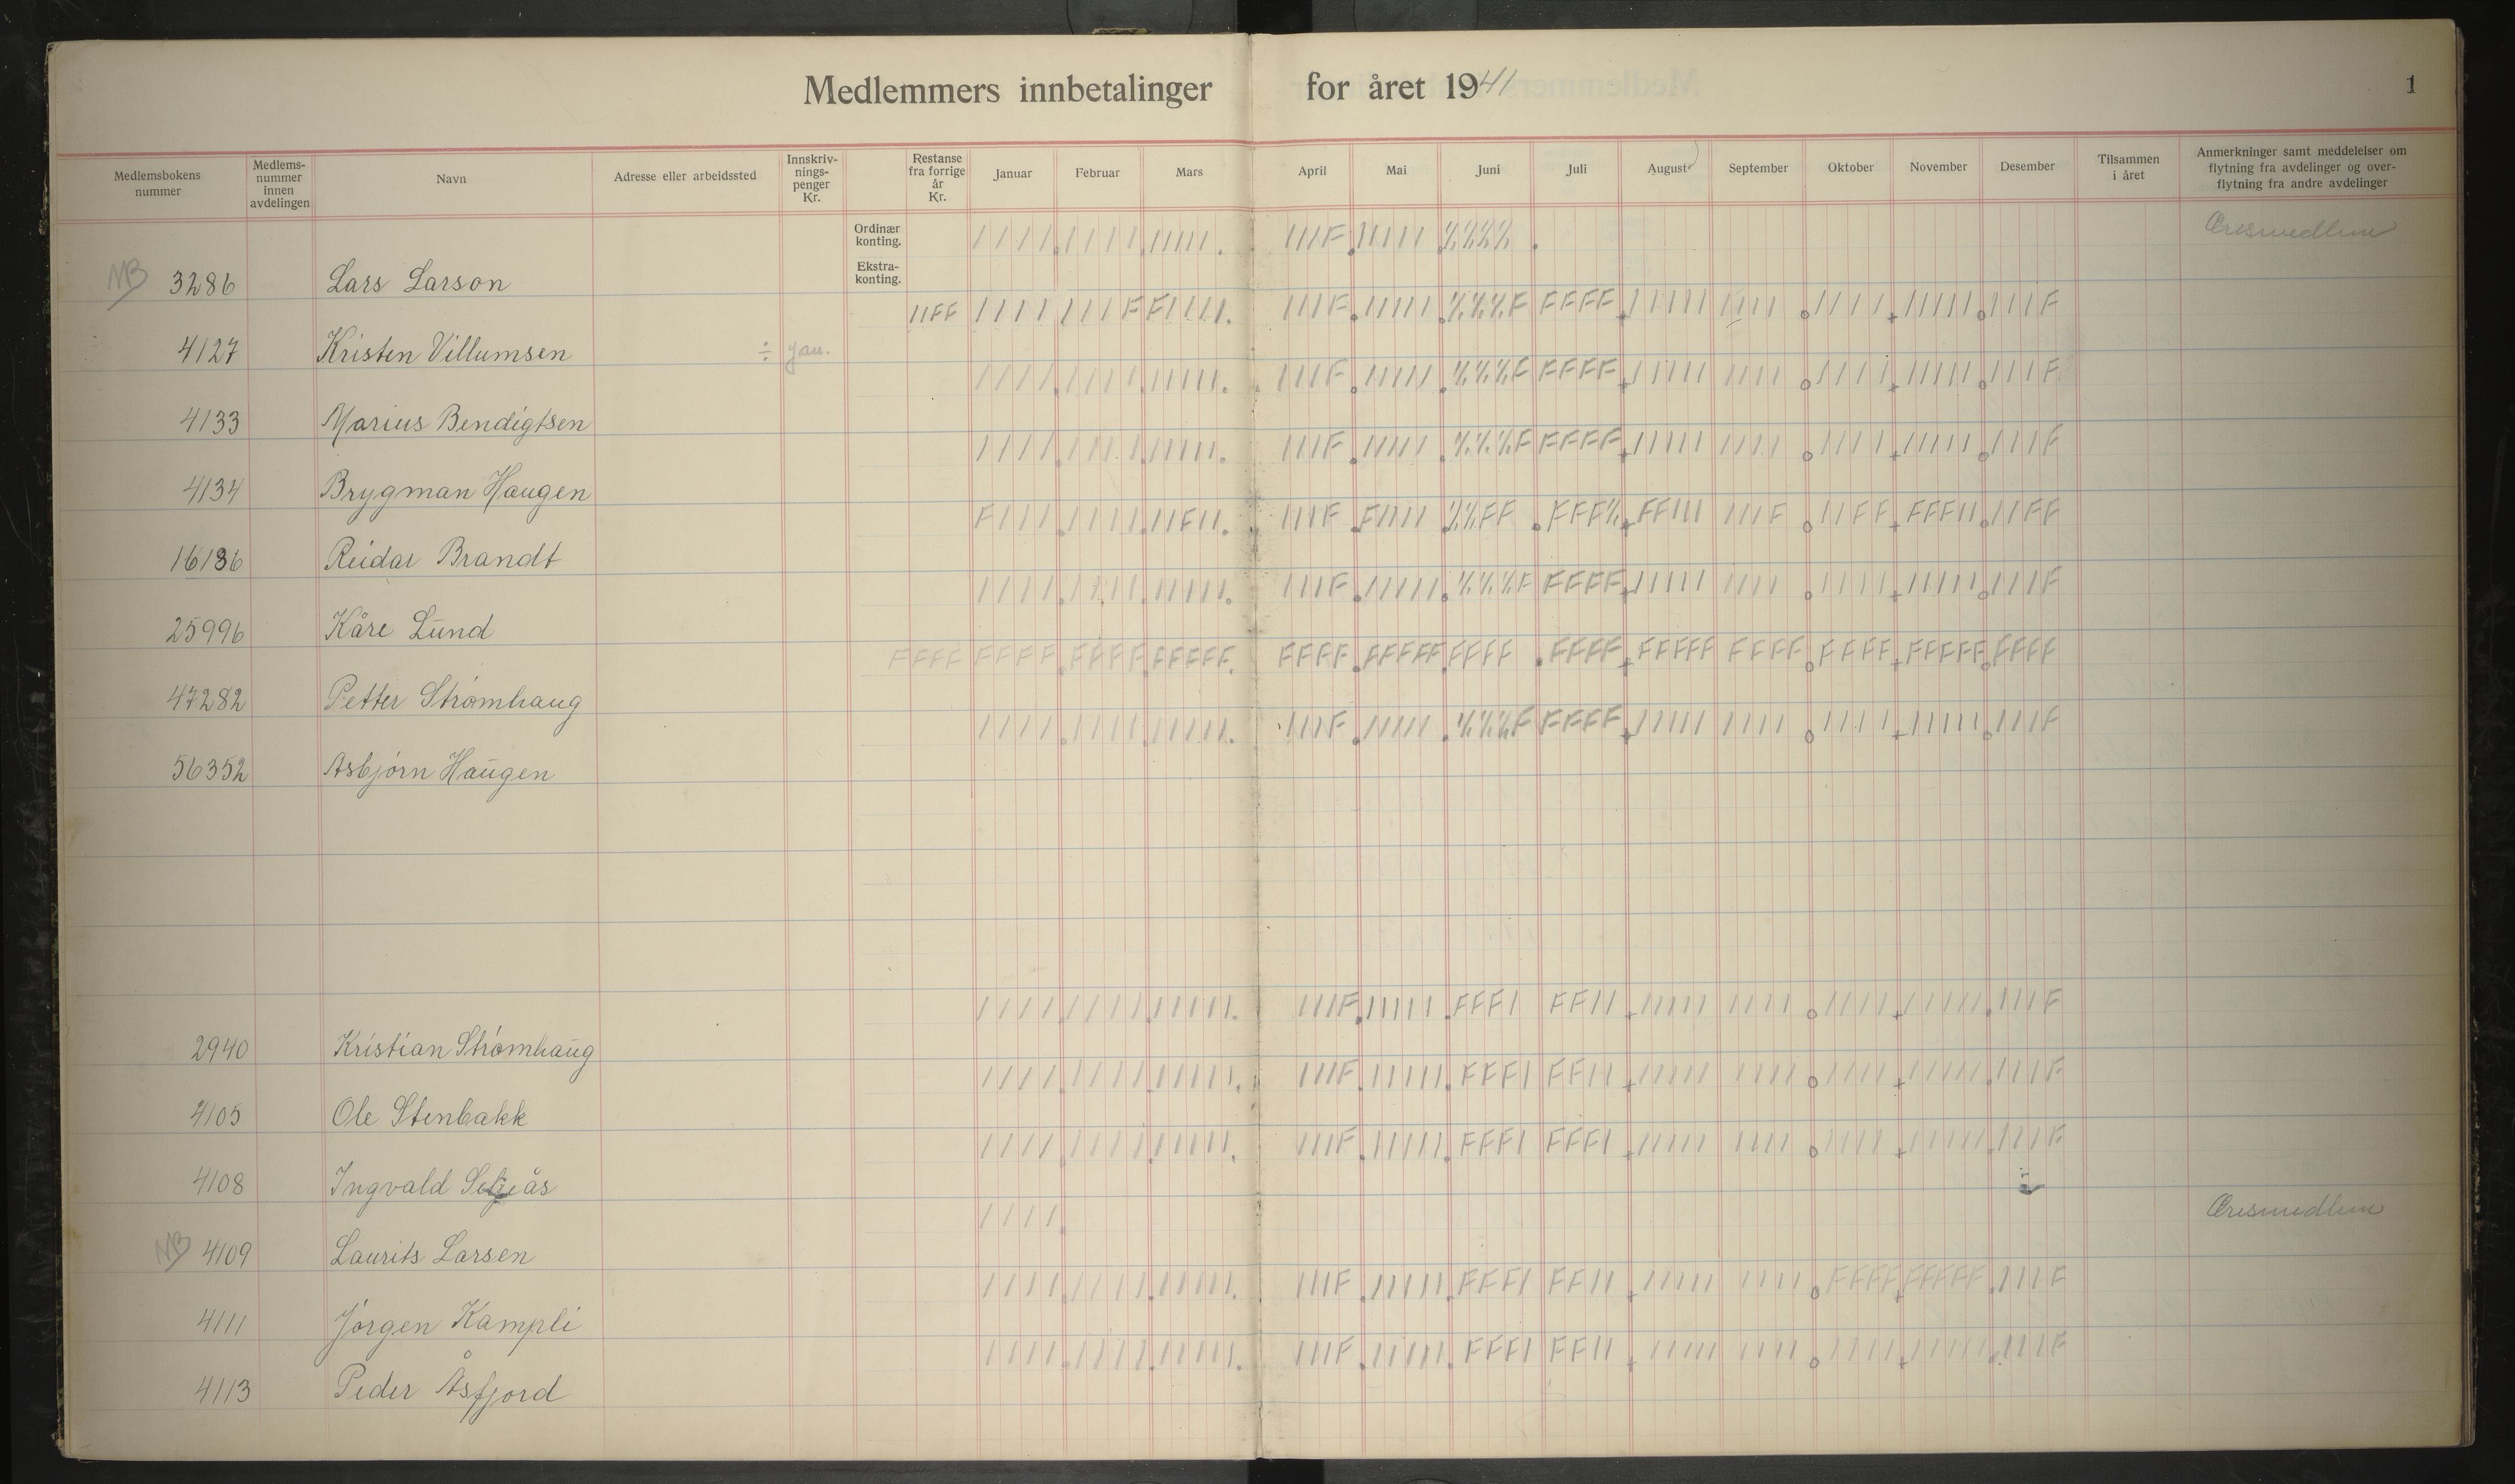 Medlemmers innbetalinger for året 1941
1
Medlemsbokens nummer
Medlems-nummer innen avdelingen
Navn
Adresse eller arbeidssted
Innskriv-nings-penger Kr.
Restanse fra forrige år Kr.
Januar
Februar
Mars
April
Mai
Juni
Juli
August
September
Oktober
November
Desember
Tilsammen i året
Anmerkninger samt meddelelser om flytning fra avdelinger og over-flytning fra andre avdelinger
Ordinær konting.
//// //// ///// ///F /////
Æresmedlem
Ekstra-konting.
NB 3286 Lars Larson
//FF //// ///F F//// ///F ///// FFFF ///// //// //// ///// ///F
4127 Kristen Villumsen ÷ Jan.
//// //// ///// ///F ///// FFFF ///// //// //// ///// ///F
4133 Marius Bendigtsen
//// //// ///// ///F ///// FFFF ///// //// //// ///// ///F
4134 Brygman Haugen
F/// //// //F// ///F F//// FF/// ///F //FF FFF// //FF
16136 Reidar Brandt
//// //// ///// ///F ///// FFFF ///// //// //// ///// ///F
25996 Kåre Lund
FFFF FFFF FFFF FFFFF FFFF FFFFF FFFF FFFF FFFFF FFFF FFFF FFFFF FFFF
47282 Petter Strømhaug
//// //// ///// ///F ///// FFFF ///// //// //// ///// ///F
56352 Asbjørn Haugen
//// //// ///// ///F ///// FFF/ FF// ///// //// //// ///// ///F
2940 Kristian Strømhaug
//// //// ///// ///F ///// FFF/ FF// ///// //// //// ///// ///F
4105 Ole Stenbakk
//// //// ///// ///F ///// FFF/ FFF/ ///// //// //// ///// ///F
4108 Ingvald
////
Æresmedlem
NB 4109 Laurits Larsen
//// //// ///// ///F ///// FFF/ FF// ///// //// FFFF FFFFF ///F
4111 Jørgen Kampli
//// //// ///// ///F ///// FFF/ FF// ///// //// //// ///// ///F
4113 Peder Åsfjord